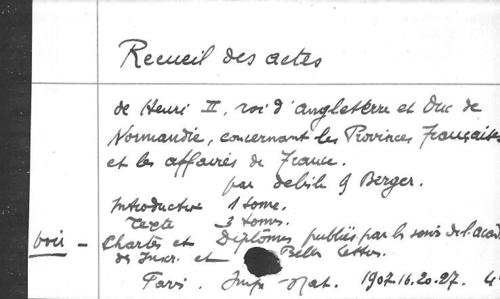 Recueil des actes
de Henri II, roi d'Angleterre et Duc de
Normandie, concernant les Provinces Françaises
et les affaires de France.
par Delisle & Berger.
Introduction 1 tome.
Texte 3 tomes.
voir - Chartes et Diplômes publiés par les soins de l'acad
des Inscr. et Belles Lettres.
Paris. Impr. Nat. 1909.16.20.27. 4°